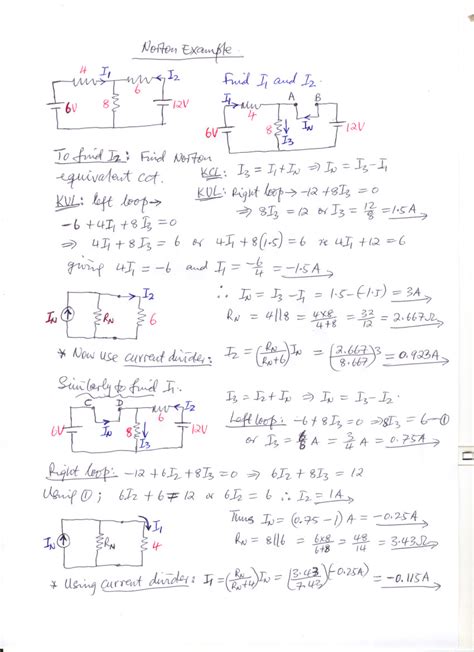 Norton Example.
4 I₁ 6 I₂
6V 8 12V
Find I₁ and I₂.
I₁ 4 A B
6V 8 I₃ I_N 12V
To find I₂: Find Norton
equivalent cct.
KCL: I₃ = I₁ + I_N ⇒ I_N = I₃ - I₁
KVL: Right loop → -12 + 8I₃ = 0
⇒ 8I₃ = 12 or I₃ = 12/8 = 1.5A
KVL: left loop →
-6 + 4I₁ + 8I₃ = 0
⇒ 4I₁ + 8I₃ = 6 or 4I₁ + 8(1.5) = 6 ie 4I₁ + 12 = 6
giving 4I₁ = -6 and I₁ = -6/4 = -1.5A
I_N R_N I₂ 6
∴ I_N = I₃ - I₁ = 1.5 - (-1.5) = 3A
R_N = 4||8 = 4x8/4+8 = 32/12 = 2.667Ω
* Now use current divider: I₂ = (R_N/R_N+6) I_N = (2.667/8.667) 3 = 0.923A
Similarly to find I₁.
C D 6 I₂
6V I_N 8 I₃ 12V
I₃ = I₂ + I_N ⇒ I_N = I₃ - I₂.
Left loop: -6 + 8I₃ = 0 ⇒ 8I₃ = 6 - ①
or I₃ = 6/8 A = 3/4 A = 0.75A
Right loop: -12 + 6I₂ + 8I₃ = 0 ⇒ 6I₂ + 8I₃ = 12
Using ①; 6I₂ + 6 = 12 or 6I₂ = 6 ∴ I₂ = 1A
I_N R_N I₁ 4
Thus I_N = (0.75 - 1) A = -0.25A
R_N = 8||6 = 6x8/6+8 = 48/14 = 3.43Ω
* Using current divider: I₁ = (R_N/R_N+4) I_N = (3.43/7.43)(-0.25A) = -0.115A